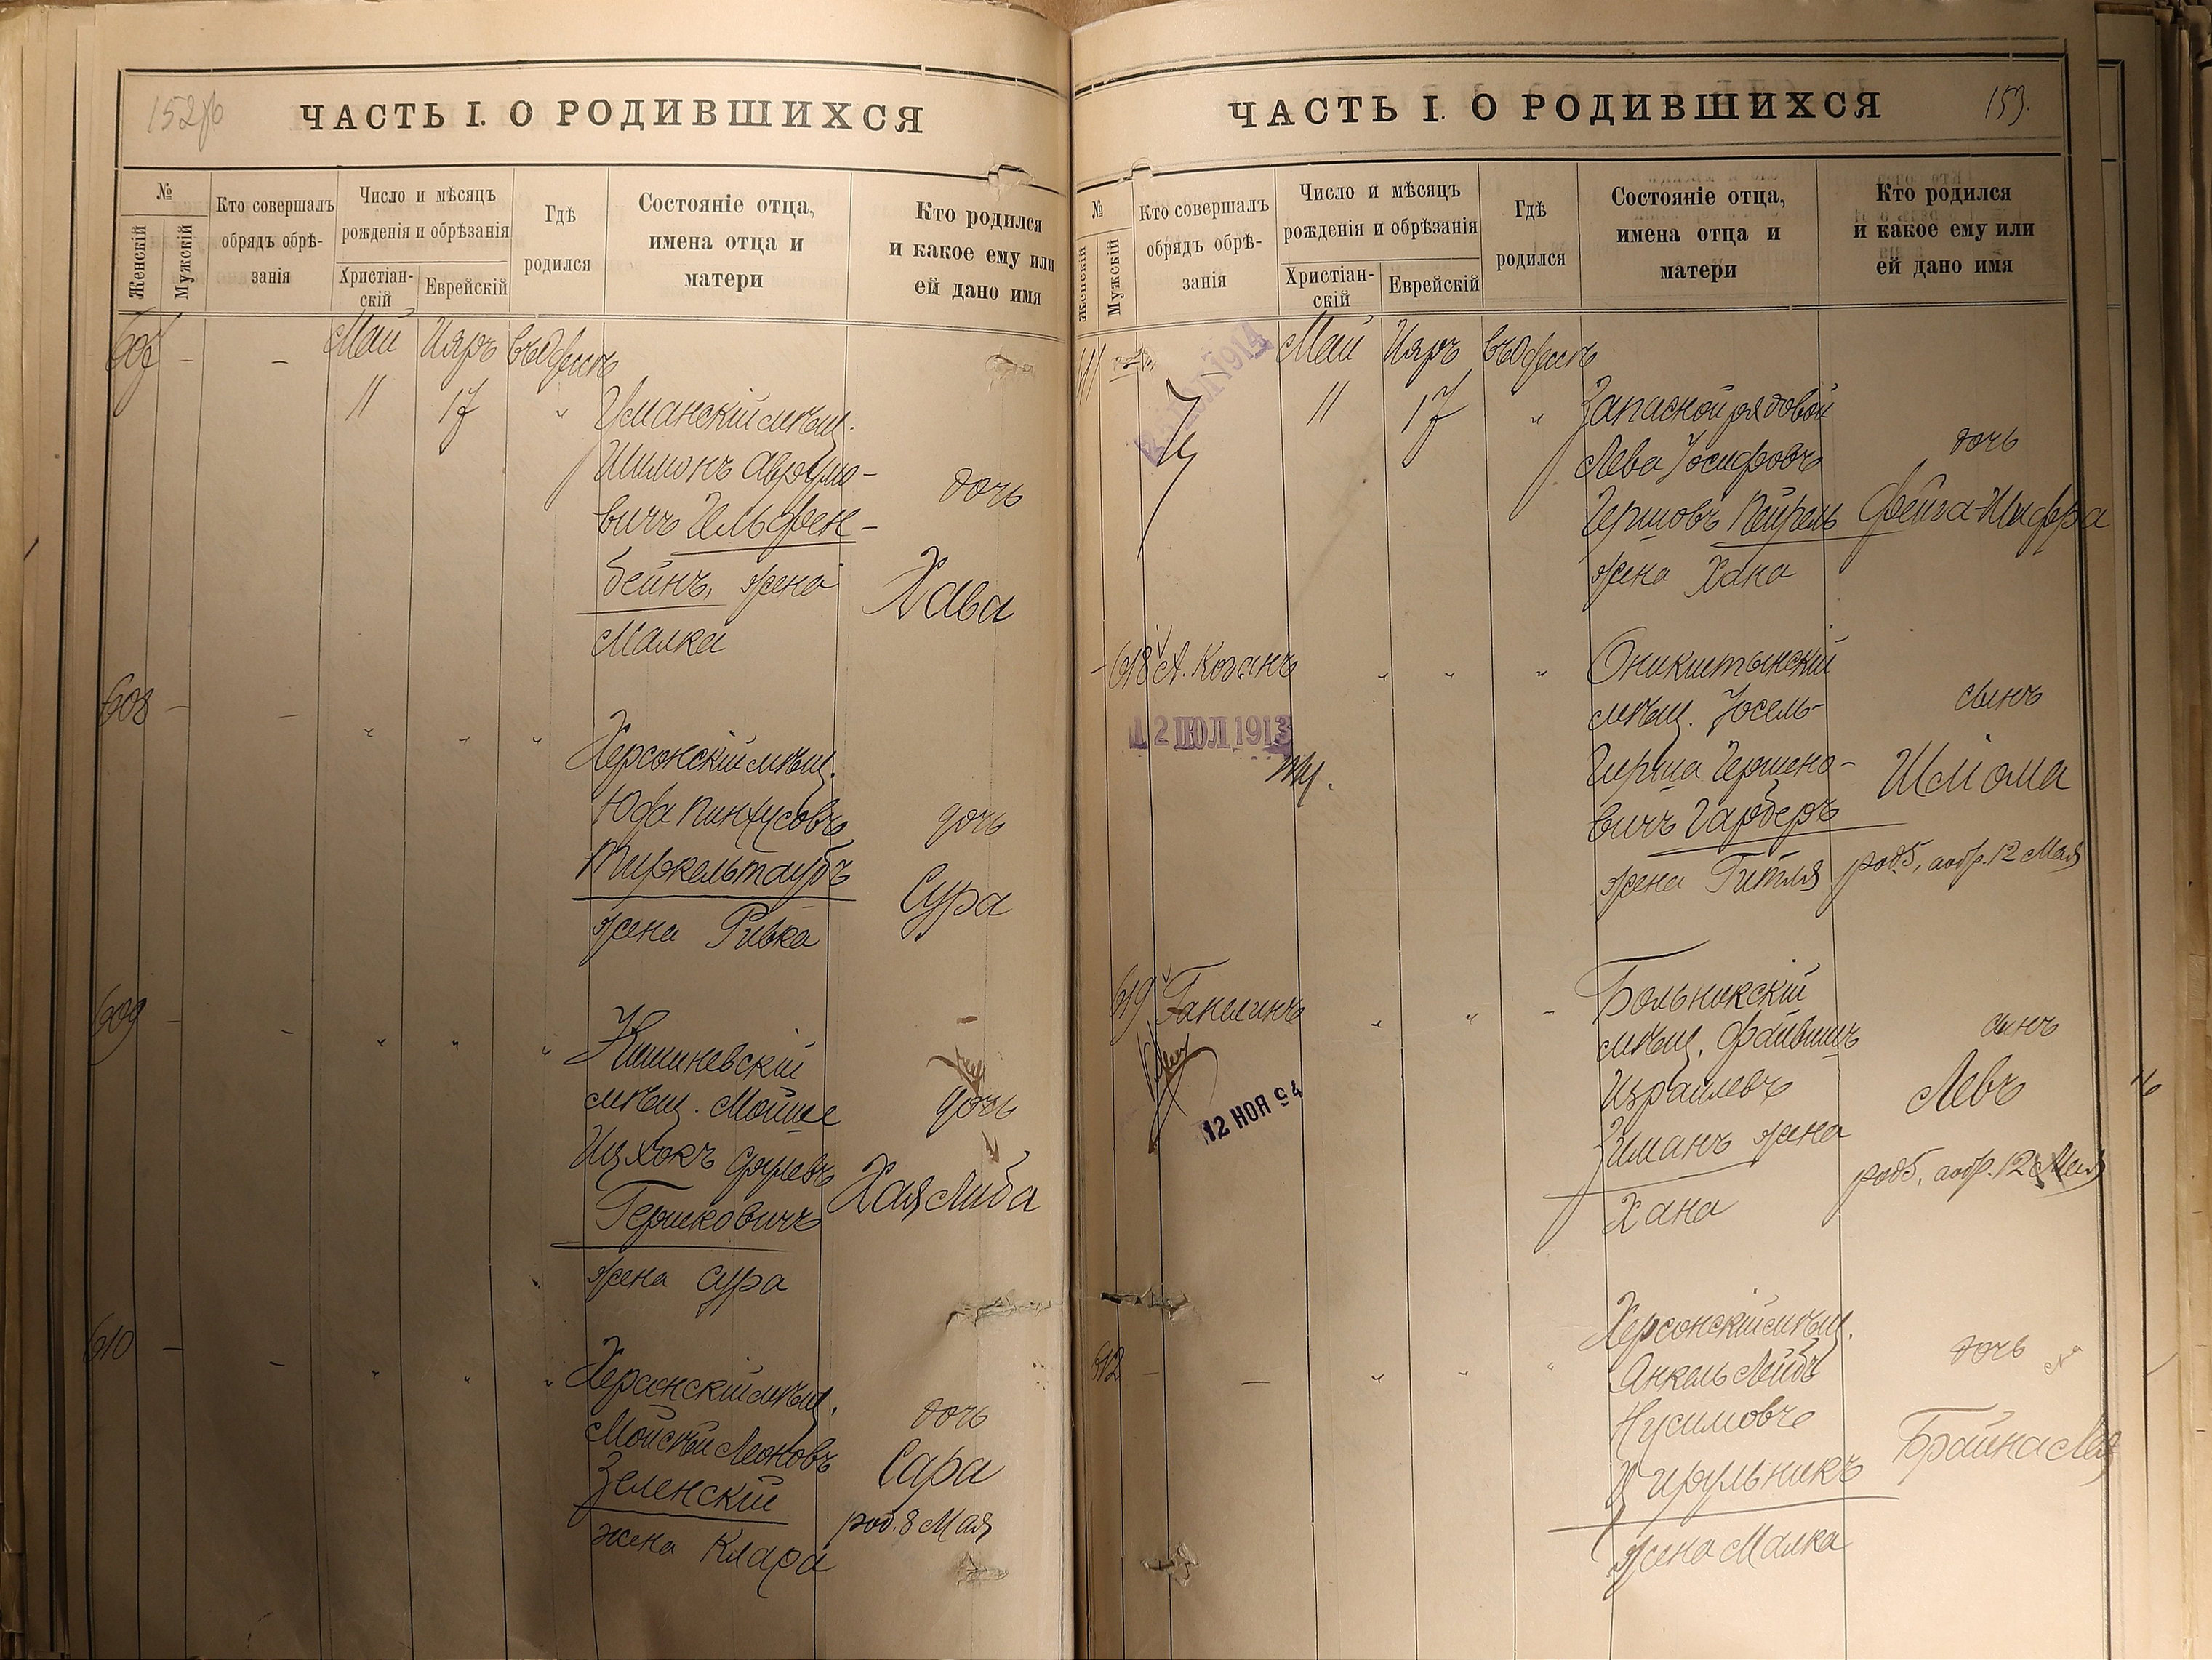 152об
ЧАСТЬ I. О РОДИВШИХСЯ
№
Женскій
Мужскій
Кто совершалъ
обрядъ обрѣ-
занія
Число и мѣсяцъ
рожденія и обрѣзанія
Христіан-
скій
Еврейскій
Гдѣ
родился
Состояніе отца,
имена отца и
матери
Кто родился
и какое ему или
ей дано имя
607 - - Май Ияръ въ Одессѣ
11 17 " Уманскій мѣщ.
Шимонъ Аврумо-
вичъ Гельфен-
бейнъ, жена
Малка
дочь
Хава
608 - - " " "
Херсонскій мѣщ.
Юда Пинхусовъ
Тиркельтаубъ
жена Ривка
дочь
Сура
609 - - " " "
Кишиневскій
мѣщ. Мойше
Ицхокъ
Гершковичъ
жена Сура
дочь
Хая Либа
610 - - " " "
Херсонскій мѣщ.
Мойсѣй Леоновъ
Зеленскій
жена Клара
дочь
Сара
род. 8 Мая
153.
ЧАСТЬ I. О РОДИВШИХСЯ
№
Женскій
Мужскій
Кто совершалъ
обрядъ обрѣ-
занія
Число и мѣсяцъ
рожденія и обрѣзанія
Христіан-
скій
Еврейскій
Гдѣ
родился
Состояніе отца,
имена отца и
матери
Кто родился
и какое ему или
ей дано имя
611 Май Ияръ въ Одессѣ
1914
11 17 " Запасной рядовой
Лева Іосифовъ
Гершовъ Пейрель
жена Хана
дочь
Фейга-Шифра
618 А. Коганъ " " "
12 ІЮЛ 1913
Оникштынскій
мѣщ. Іосель-
Герша Гершено-
вичъ Гарберъ
жена Гитля
сынъ
Шлiома
род. 5, а обр. 12 Мая
619 Ганелинъ " " -
12 НОЯ 94
Больникскій
мѣщ. Файвишъ
Израилевъ
Зиманъ жена
Хана
сынъ
Левъ
род. 5, а обр. 12 Мая
612 - - " " "
Херсонскій мѣщ.
Янкель Лейбъ
Нусимовъ
Цирульникъ
жена Малка
дочь
Брайна Лея